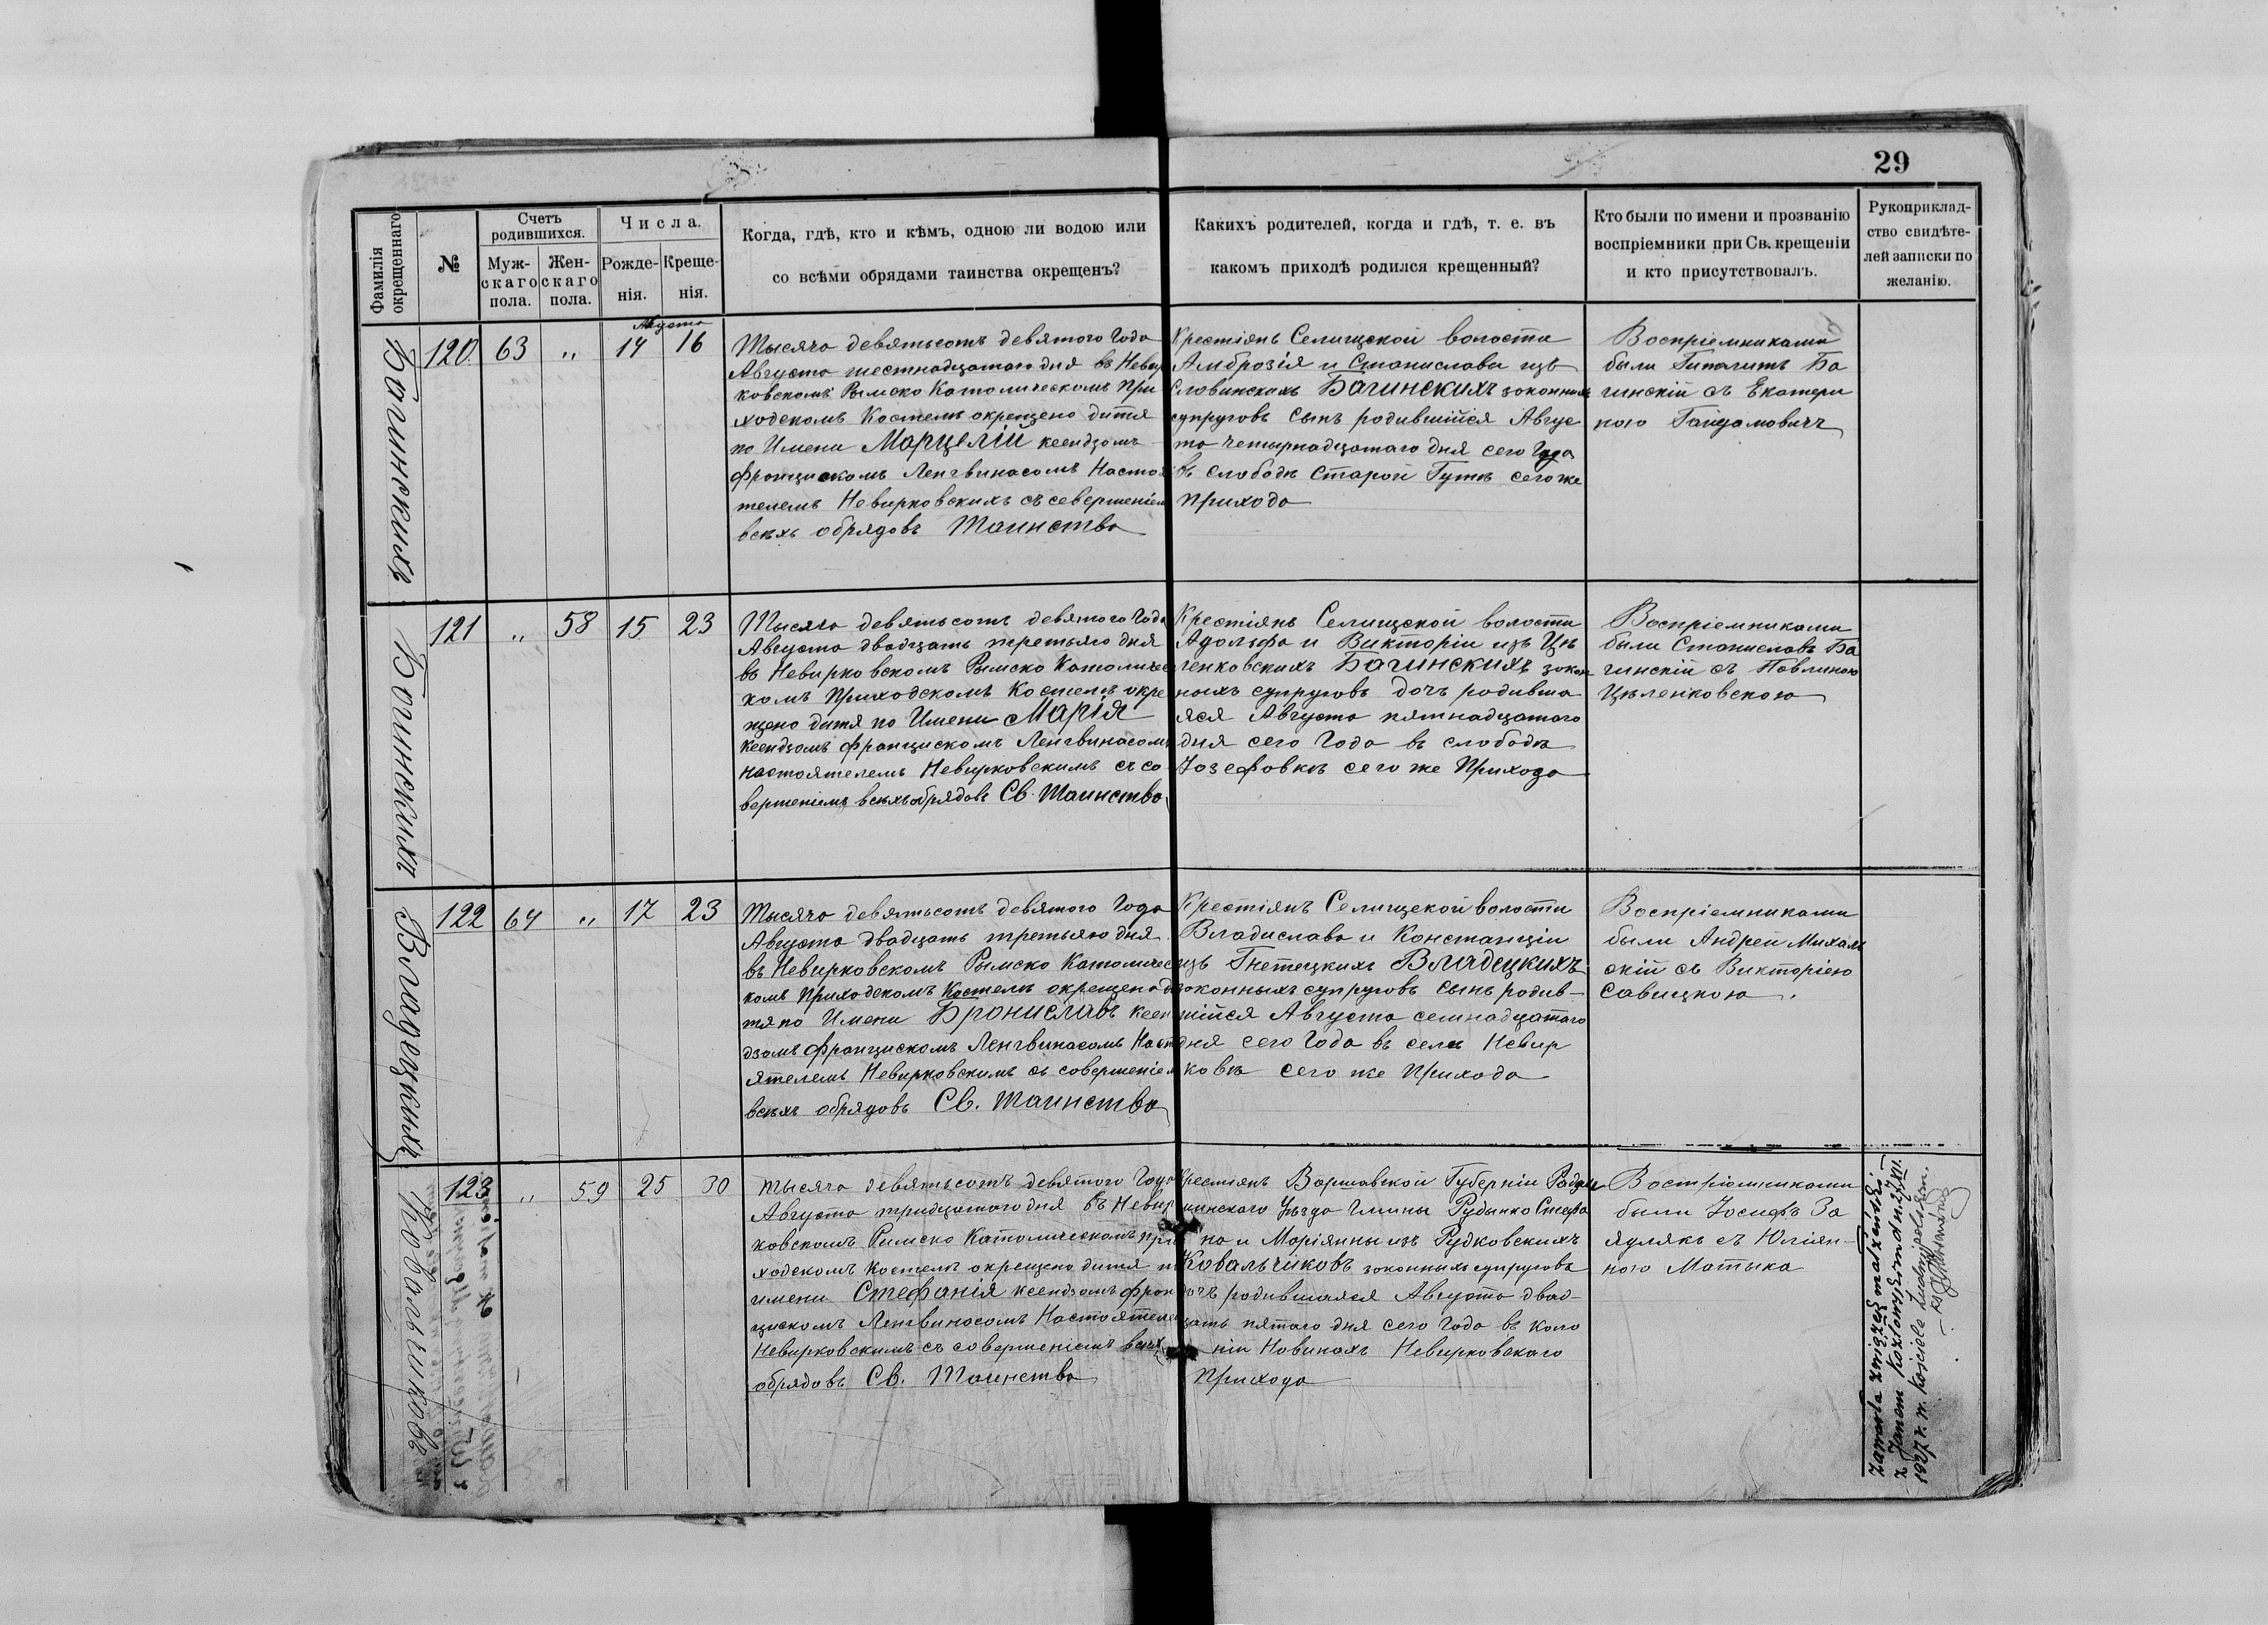 29
Фамилія окрещеннаго
№
Счетъ родившихся.
Муж-скаго пола.
Жен-скаго пола.
Числа.
Рожде-нія.
Креще-нія.
Когда, гдѣ, кто и кѣмъ, одною ли водою или
со всѣми обрядами таинства окрещенъ?
Какихъ родителей, когда и гдѣ, т. е. въ
какомъ приходѣ родился крещенный?
Кто были по имени и прозванію
воспріемники при Св. крещеніи
и кто присутствовалъ.
Рукоприклад-
ство свидѣте-
лей записки по
желанію.
Багинскихъ
120 63 „ 14 Августа 16
Тысяча девятьсотъ девятого Года
Августа шестнадцатаго дня въ Невир
ковскомъ Рымско Католическомъ При
ходскомъ Костелѣ окрещено дитя
по Имени Марцелій ксендзомъ
Францискомъ Ленгвинасомъ Настоя
телемъ Невирковскихъ съ севершеніем
всѣхъ обрядовъ Таинства
Крестіянъ Селищской волости
Амброзія и Станиславы изъ
Словинскихъ Багинскихъ законныхъ
супруговъ Сынъ родившійся Авгус
та четырнадцатаго дня сего Года
въ слободѣ Старой Гутѣ сего же
Прихода
Воспріемниками
были Гиполитъ Ба
гинскій съ Екатери
ною Гайдамовичъ
Багинскихъ
121 „ 58 15 23
Тысяча девятьсотъ девятого Года
Августа двадцать третьяго дня
въ Невирковскомъ Рымско Католичес
комъ Приходскомъ Костелѣ окре
щено дитя по Имени Марія
ксендзомъ Францискомъ Ленгвинасомъ
настоятелемъ Невирковскимъ съ со
вершеніемъ всѣхъ обрядовъ Св. Таинства
Крестіянъ Селищской волости
Адольфа и Викторіи изъ Цѣ
ленковскихъ Багинскихъ закон
ныхъ супруговъ дочъ родивша
яся Августа пятнадцатого
дня сего Года въ слободѣ
Юзефовкѣ сего же Прихода
Воспріемниками
были Станиславъ Ба
гинскій съ Павлиною
Цѣленковскою
Владецкихъ
122 64 „ 17 23
Тысяча девятьсотъ девятого Года
Августа двадцать третьяго дня
въ Невирковскомъ Рымско Католичес
комъ Приходскомъ Костелѣ окрещено ди
тя по Имени Брониславъ Ксен
дзомъ Францискомъ Ленгвинасомъ Насто
ятелемъ Невирковскимъ съ совершеніем
всѣхъ обрядовъ Св. Таинства
Крестіянъ Селищской волости
Владислава и Констанціи
изъ Гнетецкихъ Владецкихъ
законныхъ супруговъ Сынъ родив-
шійся Августа семнадцатаго
дня сего Года въ селѣ Невир
ковѣ сего же Прихода
Воспріемниками
были Андрей Михаль
скій съ Викторіею
Савицкою.
Ковальчиковъ
123 „ 59 25 30
Тысяча девятьсотъ девятого Года
Августа тридцатаго дня въ Невир
ковскомъ Римско Католическомъ при
ходскомъ Костелѣ окрещено дитя по
имени Стефанія ксендзомъ Фран
цискомъ Ленгвинасомъ Настоятелем
Невирковскимъ съ совершеніемъ всѣхъ
обрядовъ Св. Таинства
Крестіянъ Варшавской Губерніи Радзы
минскаго Уѣзда Гмины Рудынко Стефа
на и Маріянны изъ Рудковскихъ
Ковальчиковъ законныхъ супруговъ
дочъ родившаяся Августа двад-
цать пятаго дня сего Года въ Коло
ніи Новинахъ Невирковскаго
Прихода
Воспріемниками
были Іосифъ За
яулякъ съ Юліян-
ною Матыка
Zawarła związek małżeński
z Janem Kozłowskim dn. 27/XII.
1927 r. w Kościele Ludwipolskim.